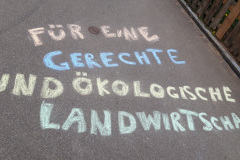 FÜR EINE
GERECHTE
UND ÖKOLOGISCHE
LANDWIRTSCHA